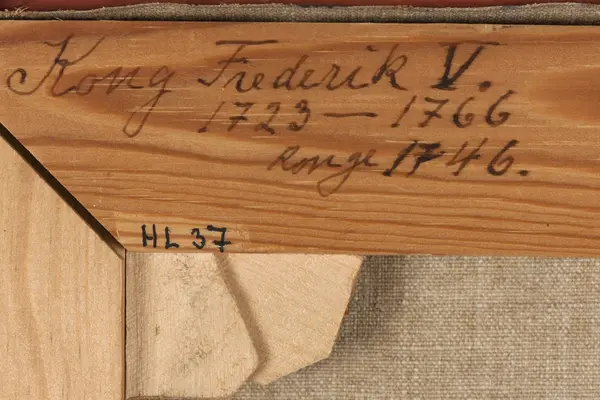 Kong Frederik V.
1723 — 1766
Konge 1746.
HL 37